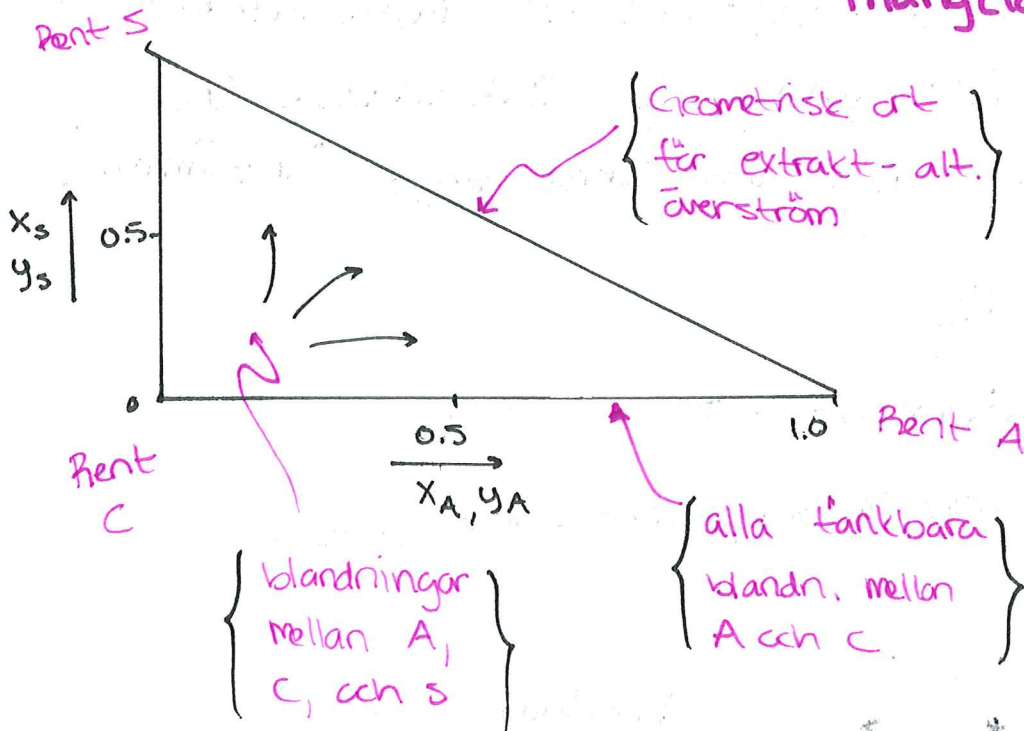 Rent S
Geometrisk ort
för extrakt- alt.
överström
xs
ys
0.5
0
0.5
1.0
Rent A
Rent
C
xA, yA
blandningar
mellan A,
C, och S
alla tänkbara
blandn. mellan
A och C.